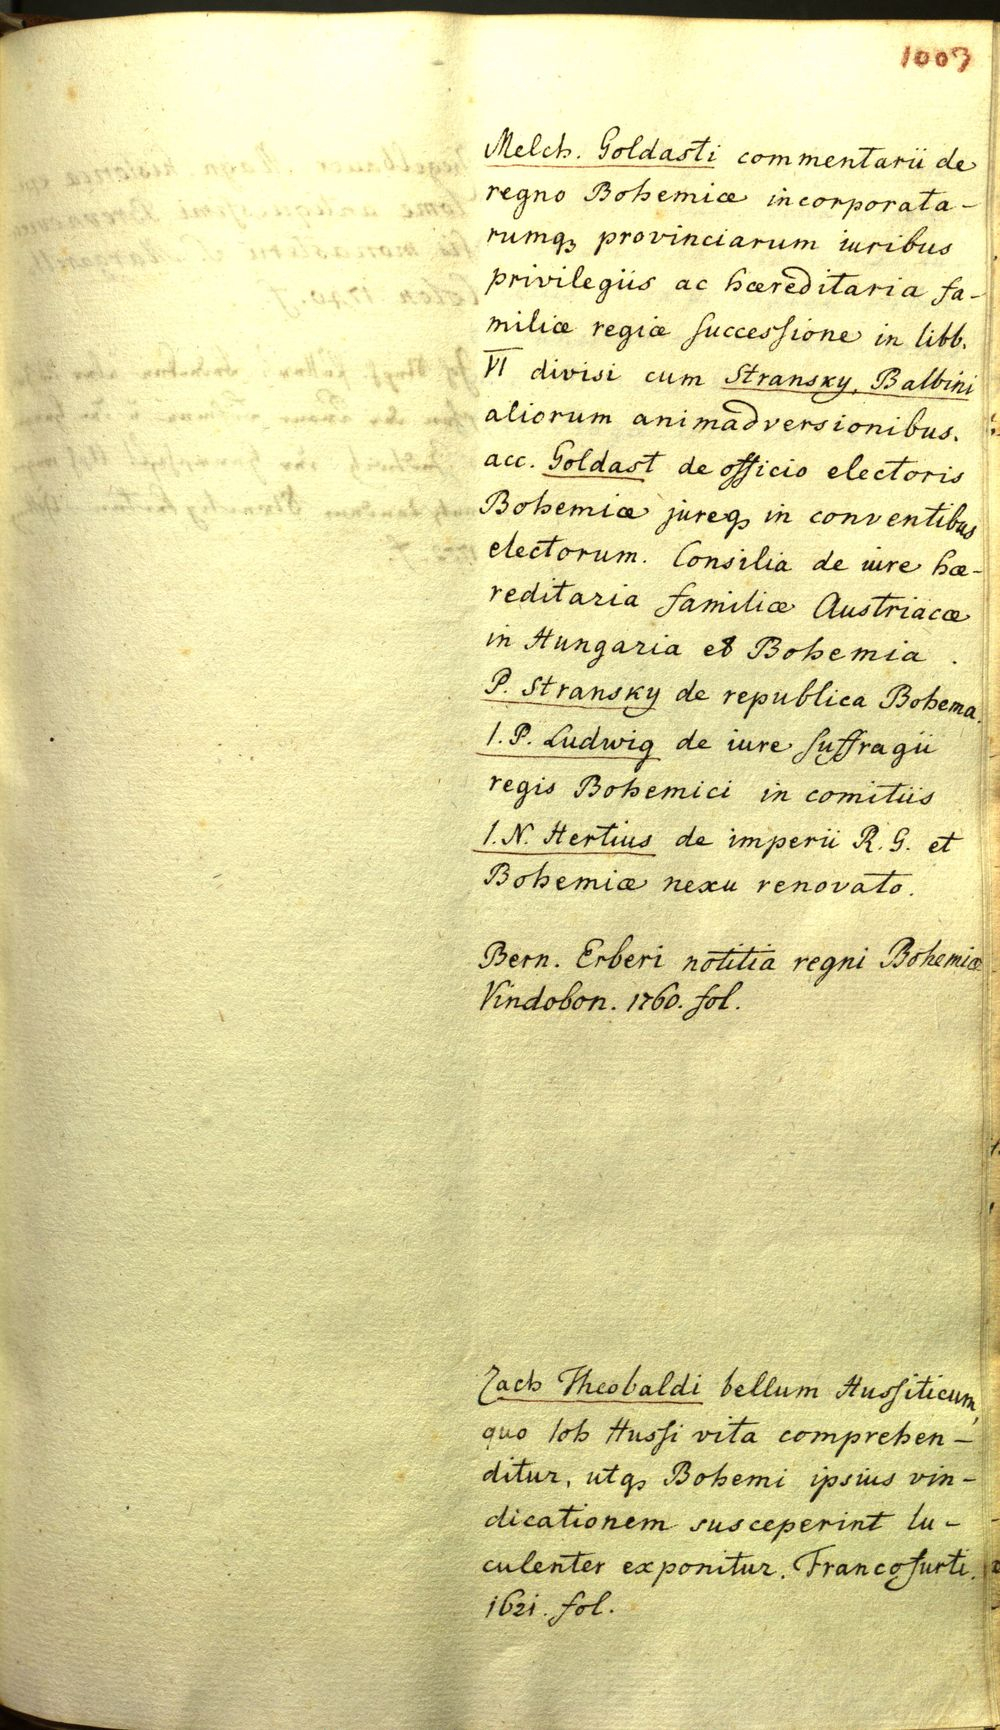 1003
Melch. Goldasti commentarii de
regno Bohemiæ incorporata-
rumq3 provinciarum iuribus
privilegiis ac hæreditaria fa-
miliæ regiæ successione in libb.
VI divisi cum Stransky, Balbini
aliorum animadversionibus.
acc. Goldast de officio electoris
Bohemiæ jureq3 in conventibus
electorum. Consilia de iure hæ-
reditaria familiæ Austriacæ
in Hungaria et Bohemia.
P. Stransky de republica Bohema.
I. P. Ludwig de iure suffragii
regis Bohemici in comitiis
I. N. Hertius de imperii R. G. et
Bohemiæ nexu renovato.
Bern. Erberi notitia regni Bohemiæ
Vindobon. 1760. fol.
Zach Theobaldi bellum Hussiticum,
quo Ioh Hussi vita comprehen-
ditur, utq3 Bohemi ipsius vin-
dicationem susceperint lu-
culenter exponitur. Francofurti.
1621. fol.